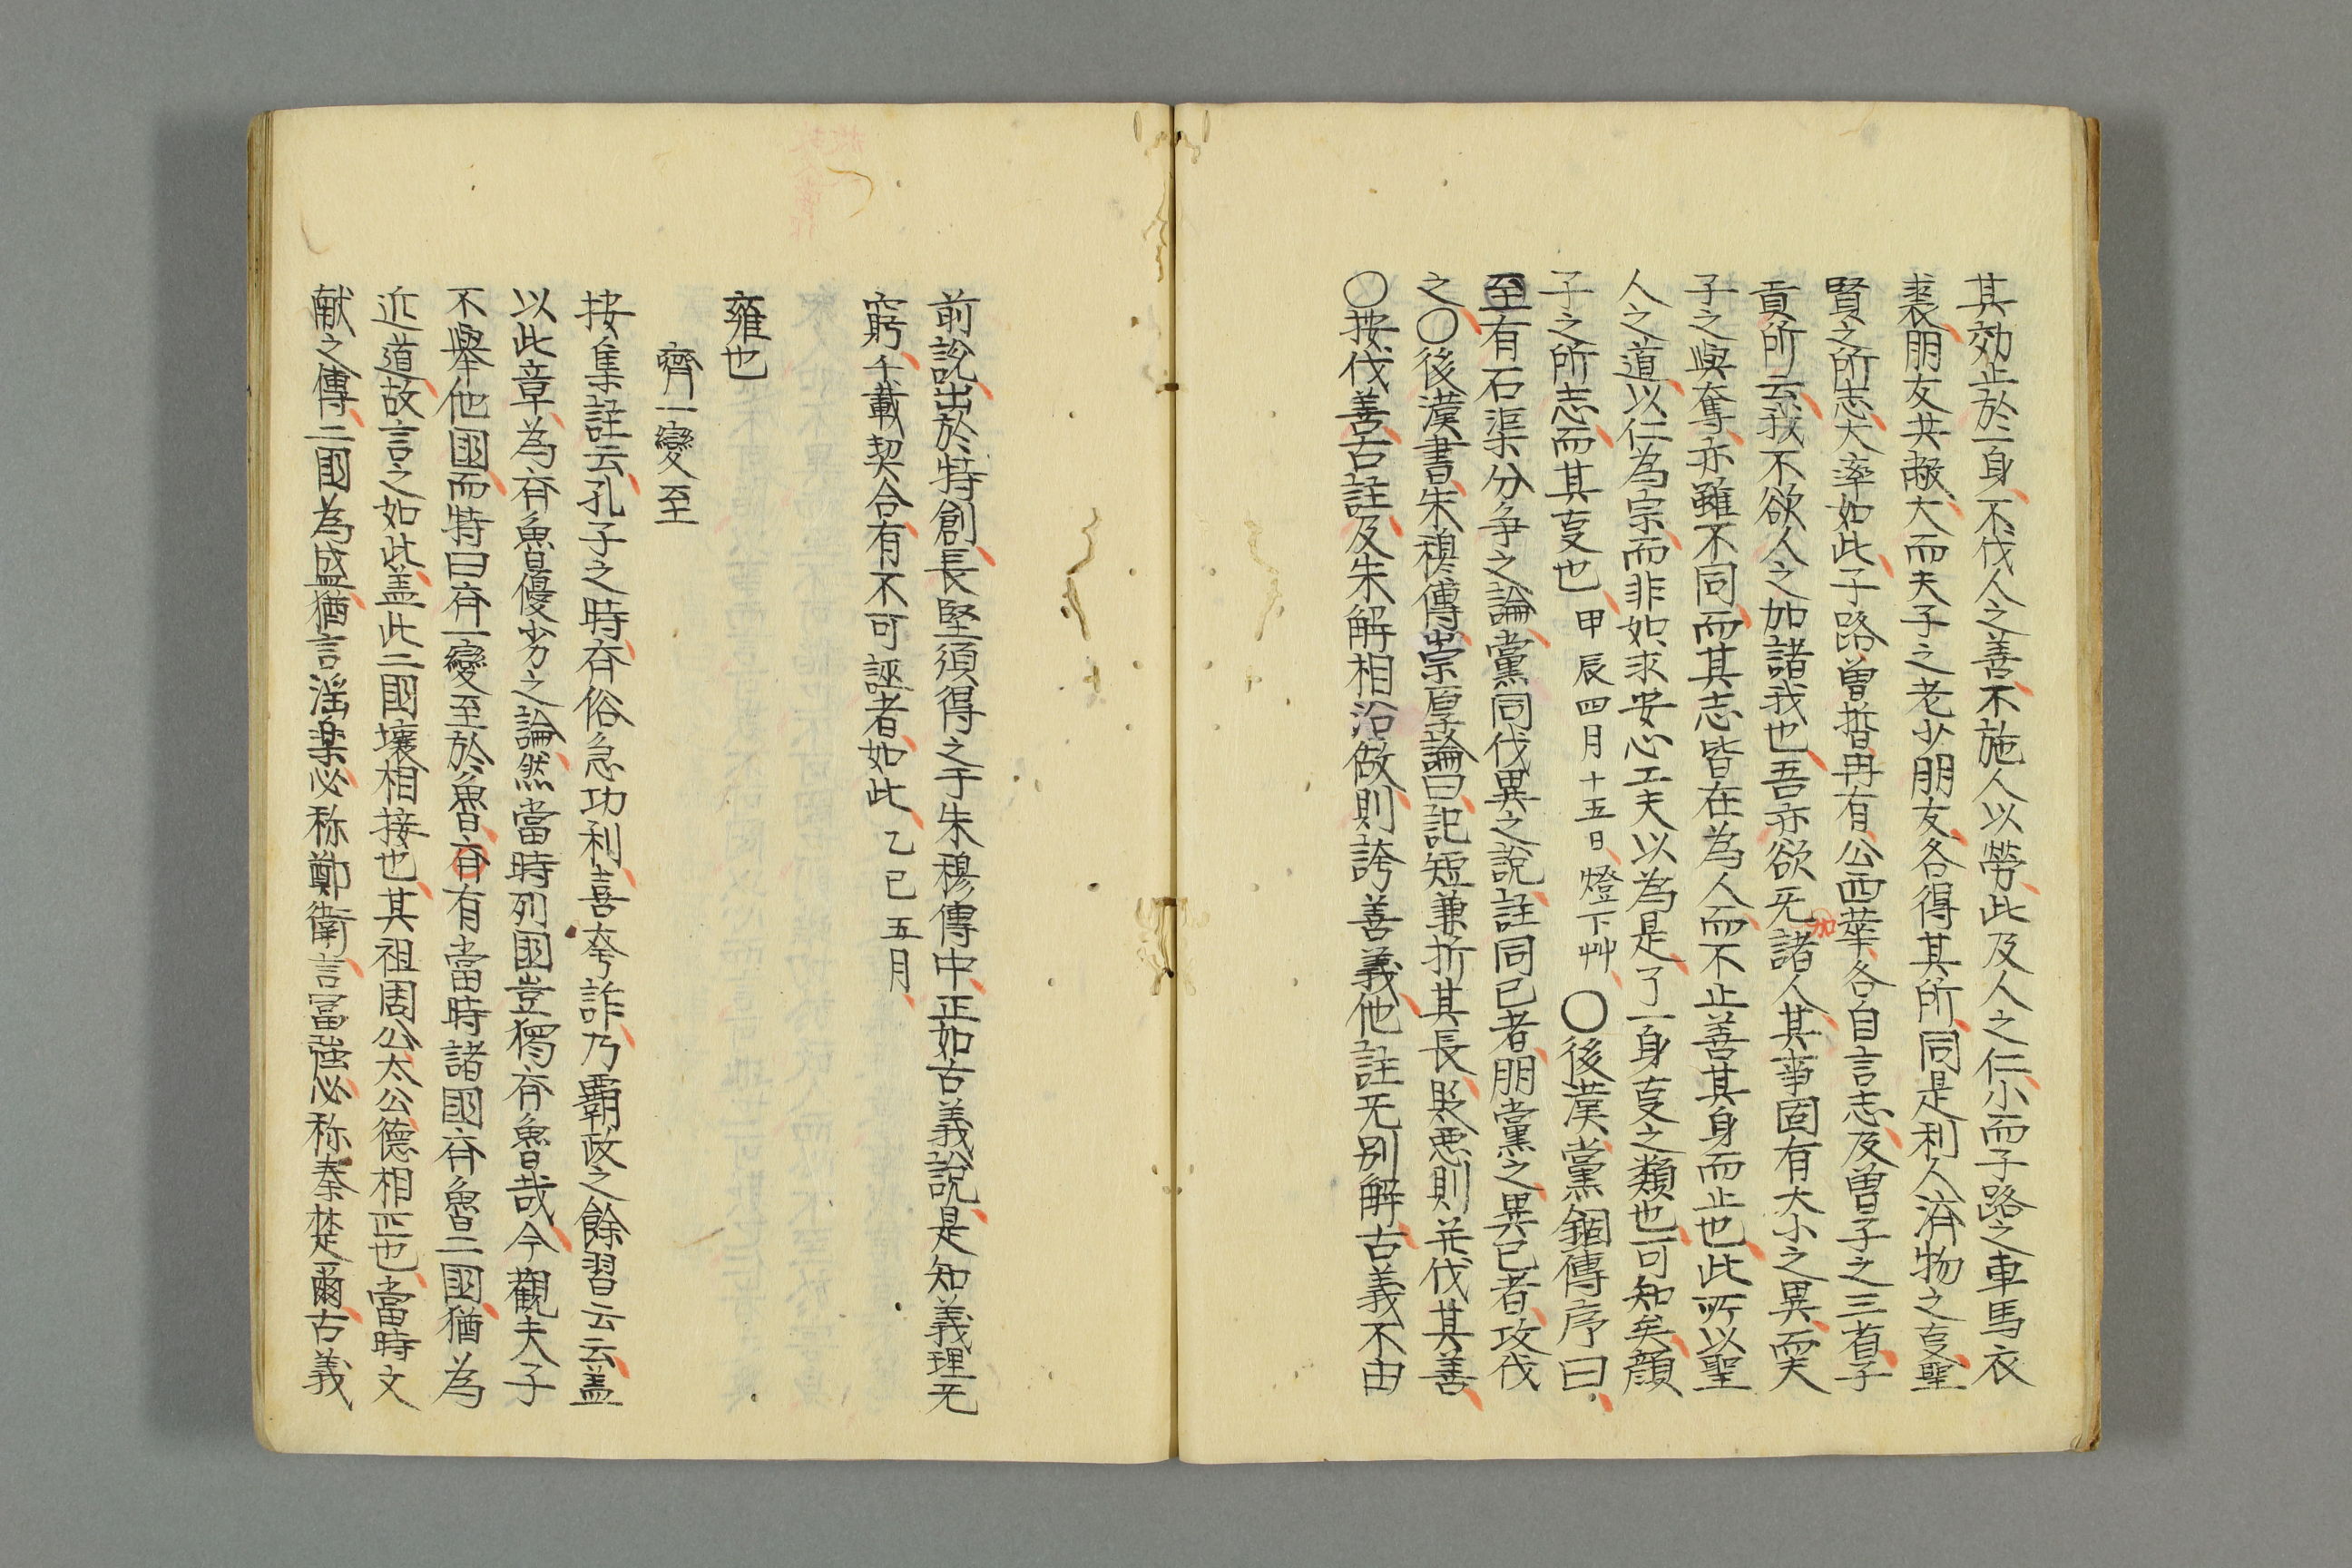 其効止於一身不伐人之善不施人以勞此及人之仁小而子路之車馬衣
裘朋友共敝大而夫子之老少朋友各得其所同是利人済物之㕝聖
賢之所志大率如此子路曽晳冉有公西華各自言志及曽子之三省子
貢所云我不欲人之加諸我也吾亦欲无加諸人其事固有大小之異而夫
子之與奪亦雖不同而其志皆在為人而不止善其身而止也此所以聖
人之道以仁為宗而非如求安心工夫以為是了一身㕝之類也可知矣顔
子之所志而其㕝也 甲辰四月十五日燈下艸 〇後漢黨錮傳序曰
至有石渠分争之論黨同伐異之説註同己者朋黨之異己者攻伐
之〇後漢書朱穆傳崇厚論曰記短兼折其長貶悪則并伐其善
〇按伐善古註及朱解相沿做則誇善義他註无別解古義不由
前説出於特創長堅須得之于朱穆傳中正如古義説是知義理无
窮千載契合有不可誣者如此 乙巳五月
雍也
齊一變至
按集註云孔子之時斉俗急功利喜夸詐乃覇政之餘習云云盖
以此章為斉魯優劣之論然當時列國豈獨斉魯哉今觀夫子
不擧他國而特曰斉一變至於魯斉有當時諸國斉魯二國猶為
近道故言之如此盖此二國壤相接也其祖周公太公德相亞也當時文
献之傳二國為盛猶言淫楽必称鄭衛言冨強必称秦楚爾古義